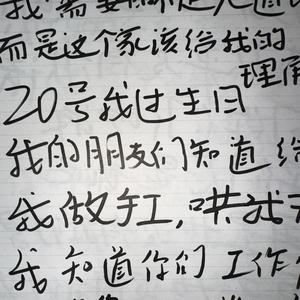 我需要的不是道
而是这个家该给我的
理解
20号我过生日
我的朋友们知道给
我做手工,哄我
我知道你们工作